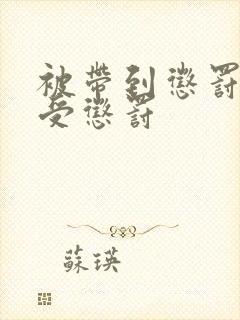 被帶到懲罰
受懲罰
蘇瑛